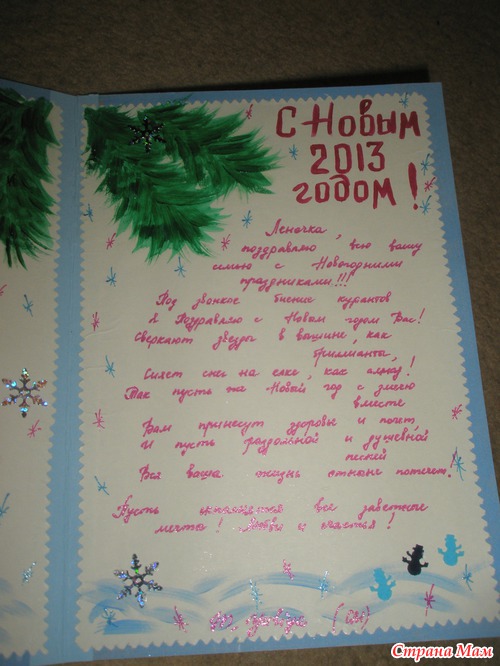 С Новым
2013
годом!
Леночка,
поздравляю всю вашу
семью с Новогодними
праздниками!!!
Под звонкое биение курантов
Я Поздравляю с Новым годом Вас!
Сверкают звезды в вышине, как
бриллианты,
Сияет снег на елке, как алмаз!
Так пусть же Новый год с
вместе
Вам принесут здоровье и почет,
И пусть раздольной и душевной
песней
Вся ваша жизнь отныне потечет!
Пусть исполнятся все заветные
мечты! Любви и счастья!
Страна Мам